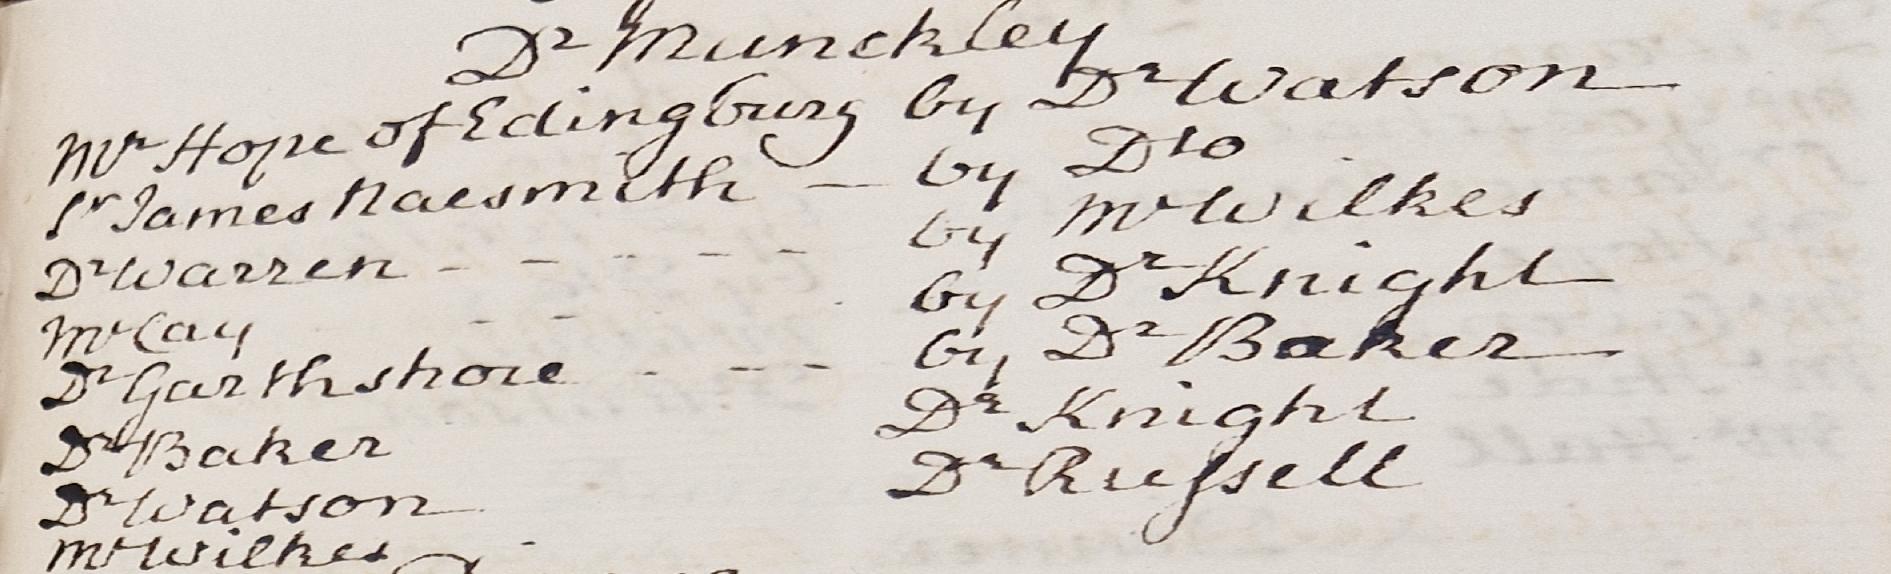 Dr Munckley
Mr Hope of Edingburg by Dr Watson
Sr James Naesmith — by Dto
Dr Warren - - - - - - by Mr Wilkes
Mr Cay - - by Dr Knight
Dr Garthshore - - - - by Dr Baker
Dr Baker Dr Knight
Dr Watson Dr Russell
Mr Wilkes